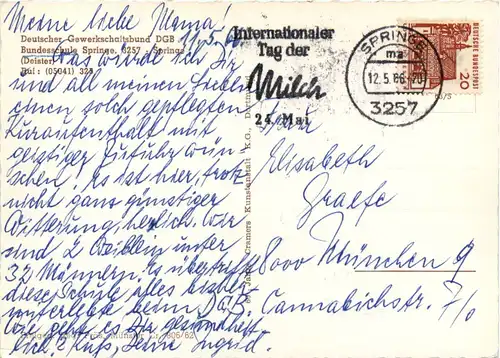 Meine liebe Mama!
11.5.66
Deutscher Gewerkschaftsbund DGB
Bundesschule Springe, 3257 Springe
(Deister)
Ruf: (05041) 328
Das würde ich Dir
und all meinen Lieben
einen solch gepflegten
Kuraufenthalt mit
geistiger Zufuhr wün-
schen! Es ist hier, trotz
nicht ganz günstiger
Witterung, herrlich. Wir
sind 2 Weiblein unter
32 Männern. Es übertrifft
diese Schule alles bisher
erlebte beim DGB.
Wie geht es Dir gesundheit-
lich? Kuß, Deine Ingrid.
Cramers Kunstanstalt K.G., Dortmund
Internationaler
Tag der
Milch
24. Mai
SPRINGE
12.5.66-20
3257
DEUTSCHE BUNDESPOST
20
Frau
Elisabeth
Graefe
8000 München 9
Cannabichstr. 7/0